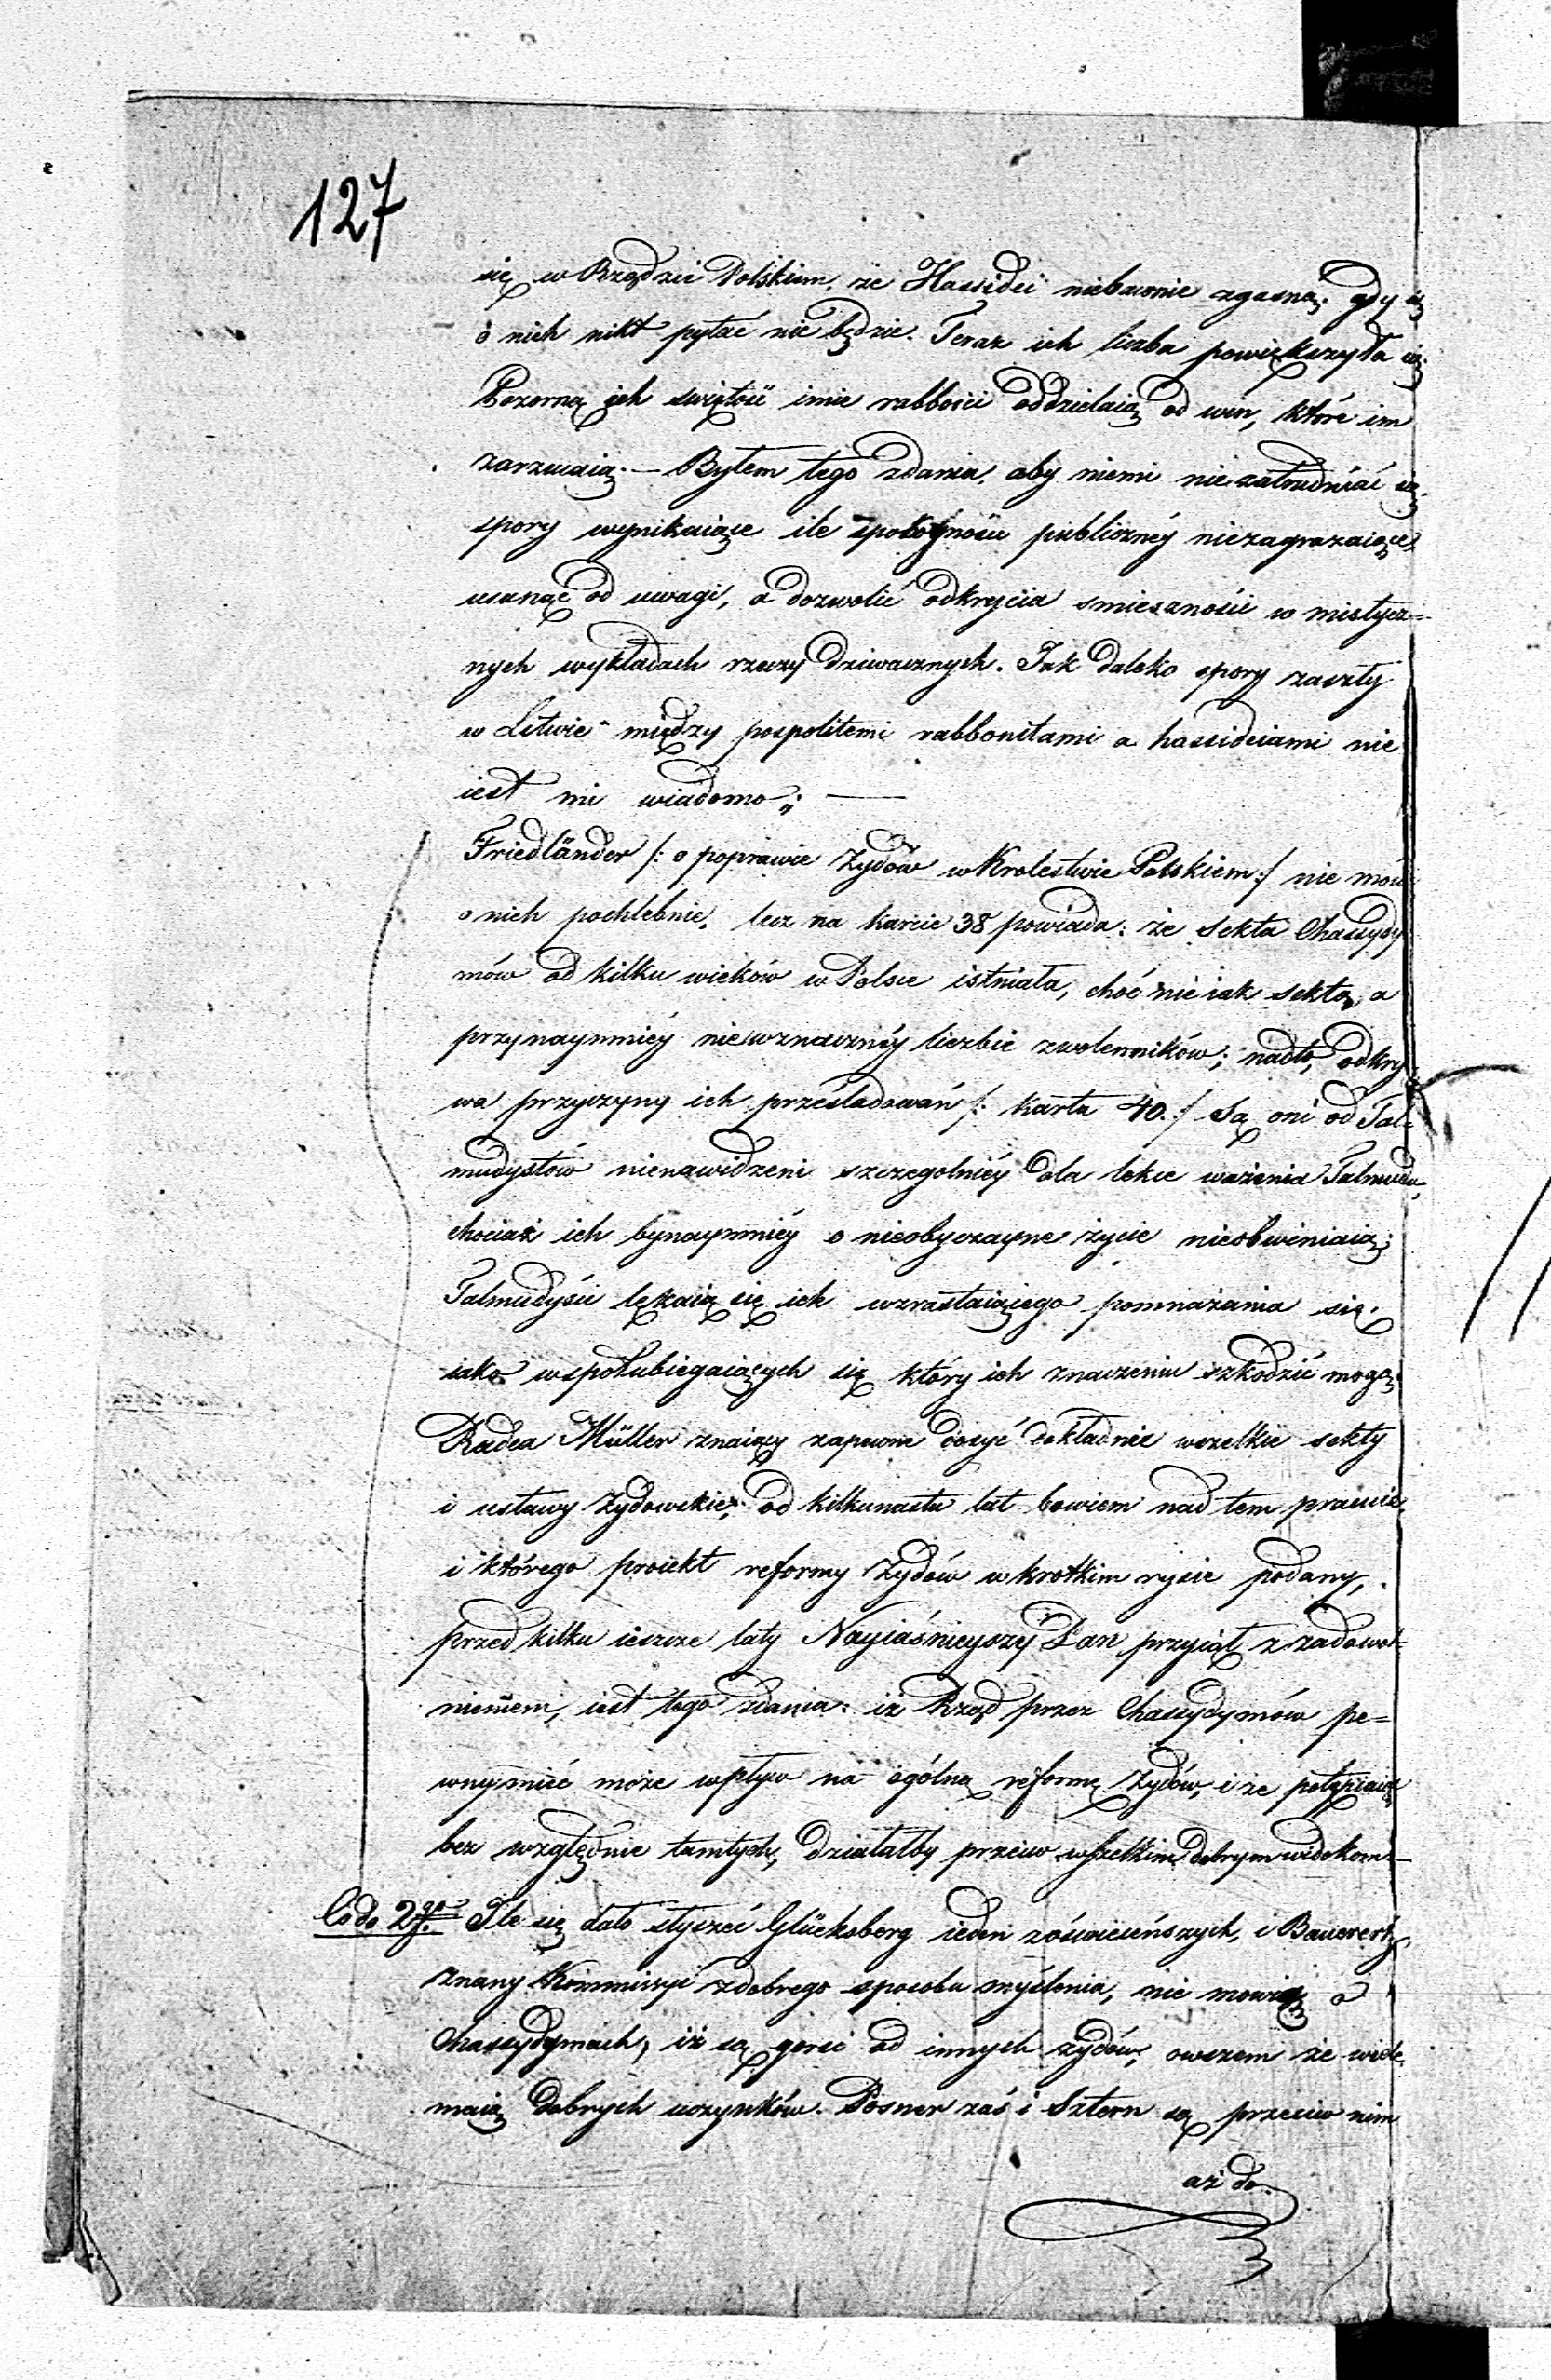 127
się w Rządzie Polskim, że Hassidei niebawnie zgasną, gdy się
o nich nikt pytać nie będzie. Teraz ich liczba powiększyła się.
Pozorną ich świętość imie rabbości oddzielaią od win, które im
zarzucaią. — Byłem tego zdania, aby niemi nie zatrudniać się,
spory wynikaiące ile spokoyności publicznéy niezagrażaiące,
usunąć od uwagi, a dozwolić odkrycia smieszności w mistycz=
nych wykładach rzeczy dziwacznych. Jak daleko spory zaszły
w Litwie między pospolitemi rabbonitami a hassideiami nie
iest mi wiadomo„; —
Friedländer /: o poprawie Żydów w Krolestwie Polskiem :/ nie mówi
o nich pochlebnie, lecz na karcie 38 powiada: że sekta Chassydy
mów od kilku wieków w Polsce istniała, choć nie iak sekta, a
przynaymniéy nie w znacznéy liczbie zwolenników; nadto, odkry
wa przyczyny ich prześladowań /: karta 40. :/ Są oni od Tal=
mudystów nienawidzeni szczegolniéy dla lekce ważenia Talmudu,
chociaż ich bynaymniéy o nieobyczayne życie nieobwiniaią;
Talmudyści lękaią się ich wzrastaiącego pomnażania się,
iako współubiegaiących się który ich znaczeniu szkodzić mogą.
Radca Müller znaiący zapewne dosyć dokładnie wszelkie sekty
i ustawy Żydowskie; od kilkunastu lat bowiem nad tem pracuie,
i którego proiekt reformy Żydów w krotkim rysie podany,
przed kilku ieszcze laty Nayiaśnieyszy Pan przyiął z zadowol=
nieniem, iest tego zdania: iż Rząd przez Chassydymów pe=
wny mieć może wpływ na ogólną reformę Żydów, i że potępiaiąc
bez względnie tamtych, działałby przeciw wszelkim dobrym widokom.—
Co do 2go. Ile się dało słyszeć Glücksberg ieden z oświeceńszych, i Bauerertz
znany Kommissyi z dobrego sposobu myślenia, nie mowią o
Chassydymach, iż są gorsi od innych żydów, owszem że wiele
maią dobrych uczynków. Posner zaś i Sztern są przeciw nim
aż do.